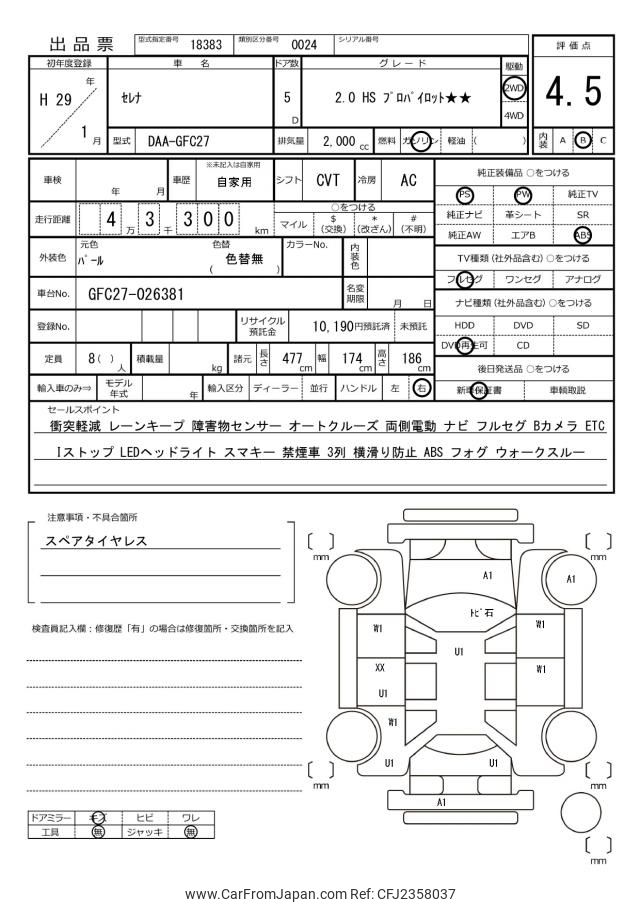 出品票
型式指定番号 18383 類別区分番号 0024 シリアル番号
評価点
初年度登録 車名 ドア数 グレード 駆動
H 29 年 ｾﾚﾅ 5 D 2.0 HS ﾌﾟﾛﾊﾟｲﾛｯﾄ★★ 2WD 4.5
4WD
1 月 型式 DAA-GFC27 排気量 2,000 cc 燃料 ガソリン 軽油 ( ) 内装 A B C
車検 年 月 車歴 ※未記入は自家用 自家用 シフト CVT 冷房 AC
純正装備品 ○をつける
PS PW 純正TV
走行距離 4 万 3 千 3 0 0 km ○をつける
マイル $ (交換) * (改ざん) # (不明)
純正ナビ 革シート SR
純正AW エアB ABS
外装色 元色 ﾊﾟｰﾙ 色替 ( 色替無 ) カラーNo. 内装色
TV種類 (社外品含む) ○をつける
フルセグ ワンセグ アナログ
車台No. GFC27-026381 名変期限 月 日
ナビ種類 (社外品含む) ○をつける
登録No. リサイクル預託金 10,190円預託済 未預託
HDD DVD SD
DVD再生可 CD
定員 8 ( ) 人 積載量 kg 諸元 長さ 477 cm 幅 174 cm 高さ 186 cm
後日発送品 ○をつける
輸入車のみ⇒ モデル年式 年 輸入区分 ディーラー 並行 ハンドル 左 右
新車保証書 車輌取説
セールスポイント
衝突軽減 レーンキープ 障害物センサー オートクルーズ 両側電動 ナビ フルセグ Bカメラ ETC
Iストップ LEDヘッドライト スマキー 禁煙車 3列 横滑り防止 ABS フォグ ウォークスルー
注意事項・不具合箇所
スペアタイヤレス
mm mm
A1 A1
ﾄﾋﾞ石
検査員記入欄：修復歴「有」の場合は修復箇所・交換箇所を記入
W1 W1
U1
XX W1
U1
W1
U1 U1
mm mm
A1
ドアミラー キズ ヒビ ワレ
工具 無 ジャッキ 無
mm
www.CarFromJapan.com Ref: CFJ2358037